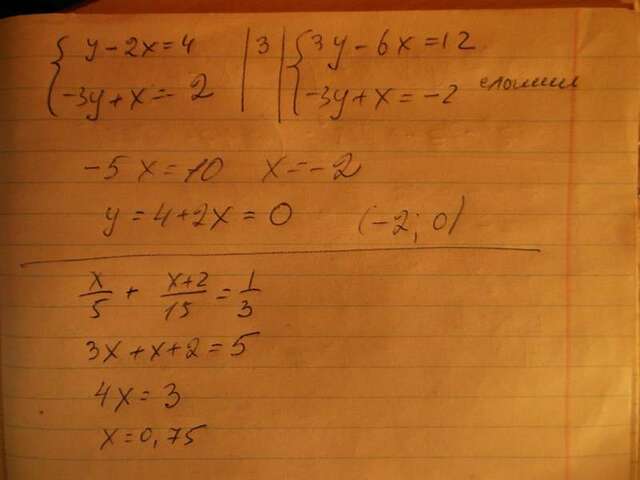 { y - 2x = 4 | 3 | { 3y - 6x = 12
{ -3y + x = -2 { -3y + x = -2 сложим
-5x = 10 x = -2
y = 4 + 2x = 0 (-2; 0)
x/5 + (x+2)/15 = 1/3
3x + x + 2 = 5
4x = 3
x = 0,75